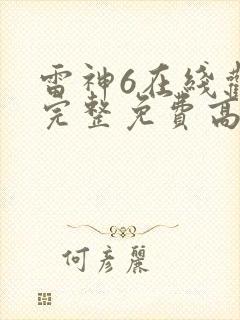 雷神6在綫觀
完整免費高
何彦麗